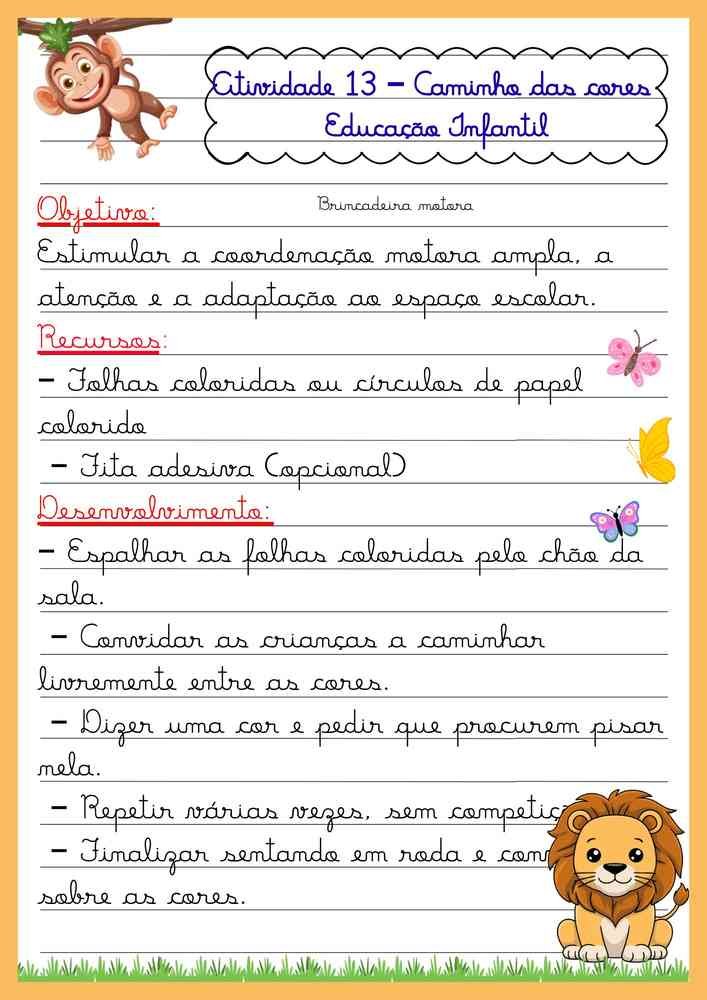 Atividade 13 - Caminho das cores
Educação Infantil
Objetivo:
Brincadeira motora
Estimular a coordenação motora ampla, a
atenção e a adaptação ao espaço escolar.
Recursos:
- Folhas coloridas ou círculos de papel
colorido
- Fita adesiva (opcional)
Desenvolvimento:
- Espalhar as folhas coloridas pelo chão da
sala.
- Convidar as crianças a caminhar
livremente entre as cores.
- Dizer uma cor e pedir que procurem pisar
nela.
- Repetir várias vezes, sem
- Finalizar sentando em roda e
sobre as cores.